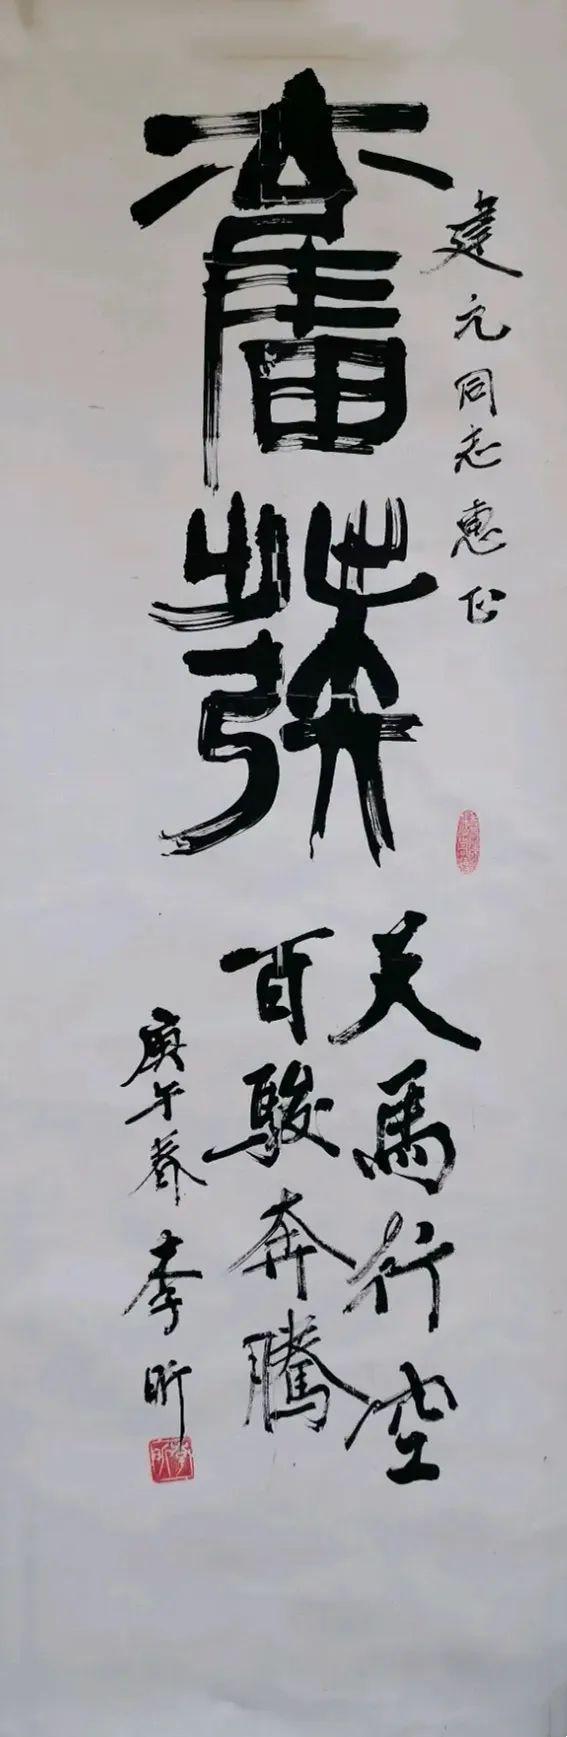 建元同志惠正
奮發
天馬行空
百駿奔騰
庚午春 李昕
李昕